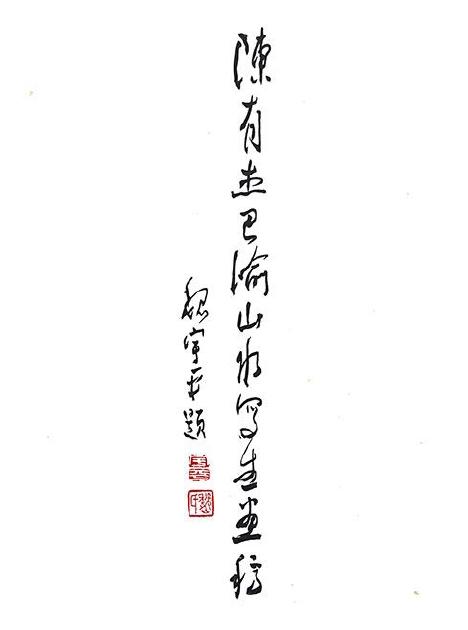 陳有杰巴渝山水写生畫稿
魏宇平題